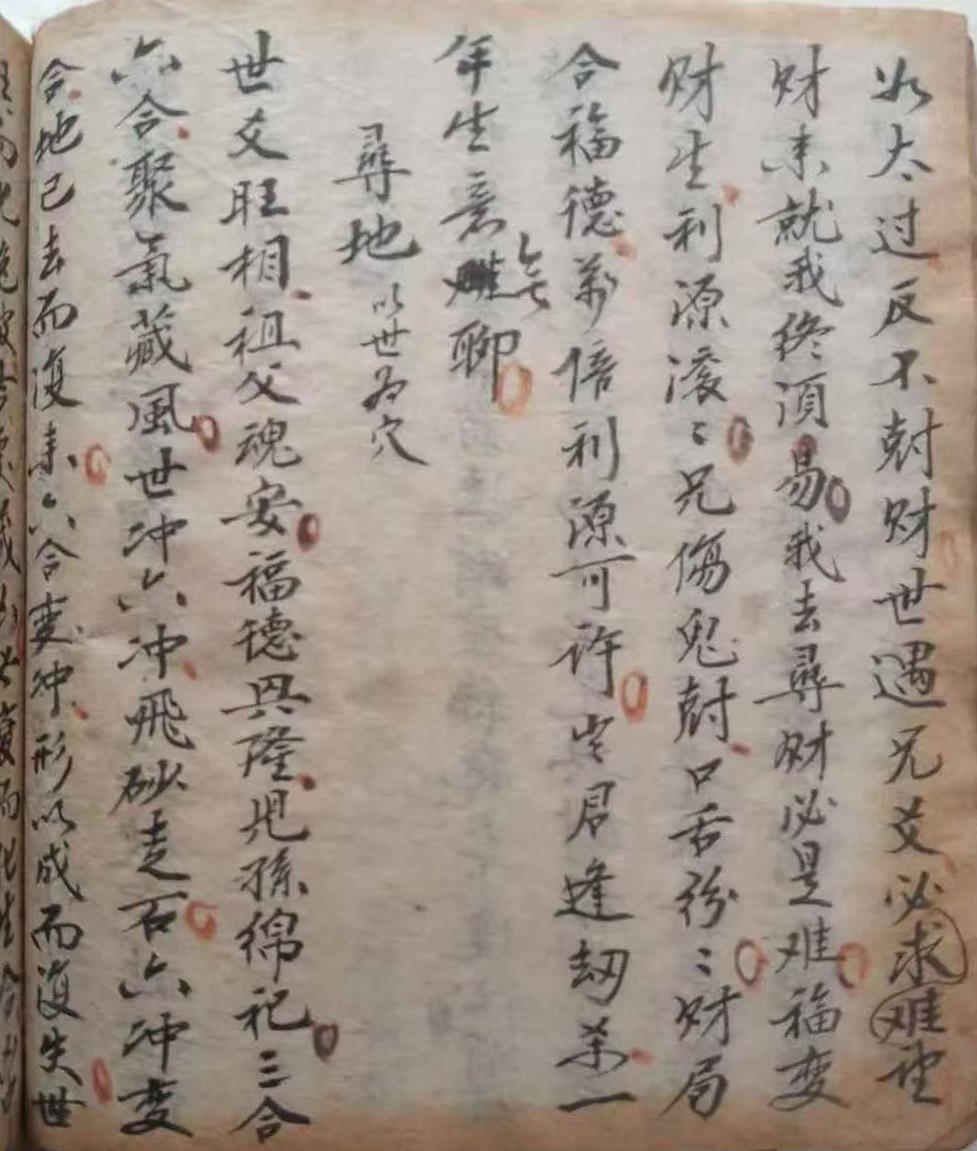 如太过反不尅财世遇兄爻必求难望
财来就我终须易我去尋财必是难福变
财生利源滚〻兄傷鬼尅口舌纷〻财局
合福德萬倍利源可许官君逢劫杀一
年生意無聊
尋地以世为穴
世爻旺相祖父魂安福德興隆児孫绵祀三合
六合聚氣藏風世冲六冲飛砂走石六冲变
合地已去而復来六合变冲形以成而復失世